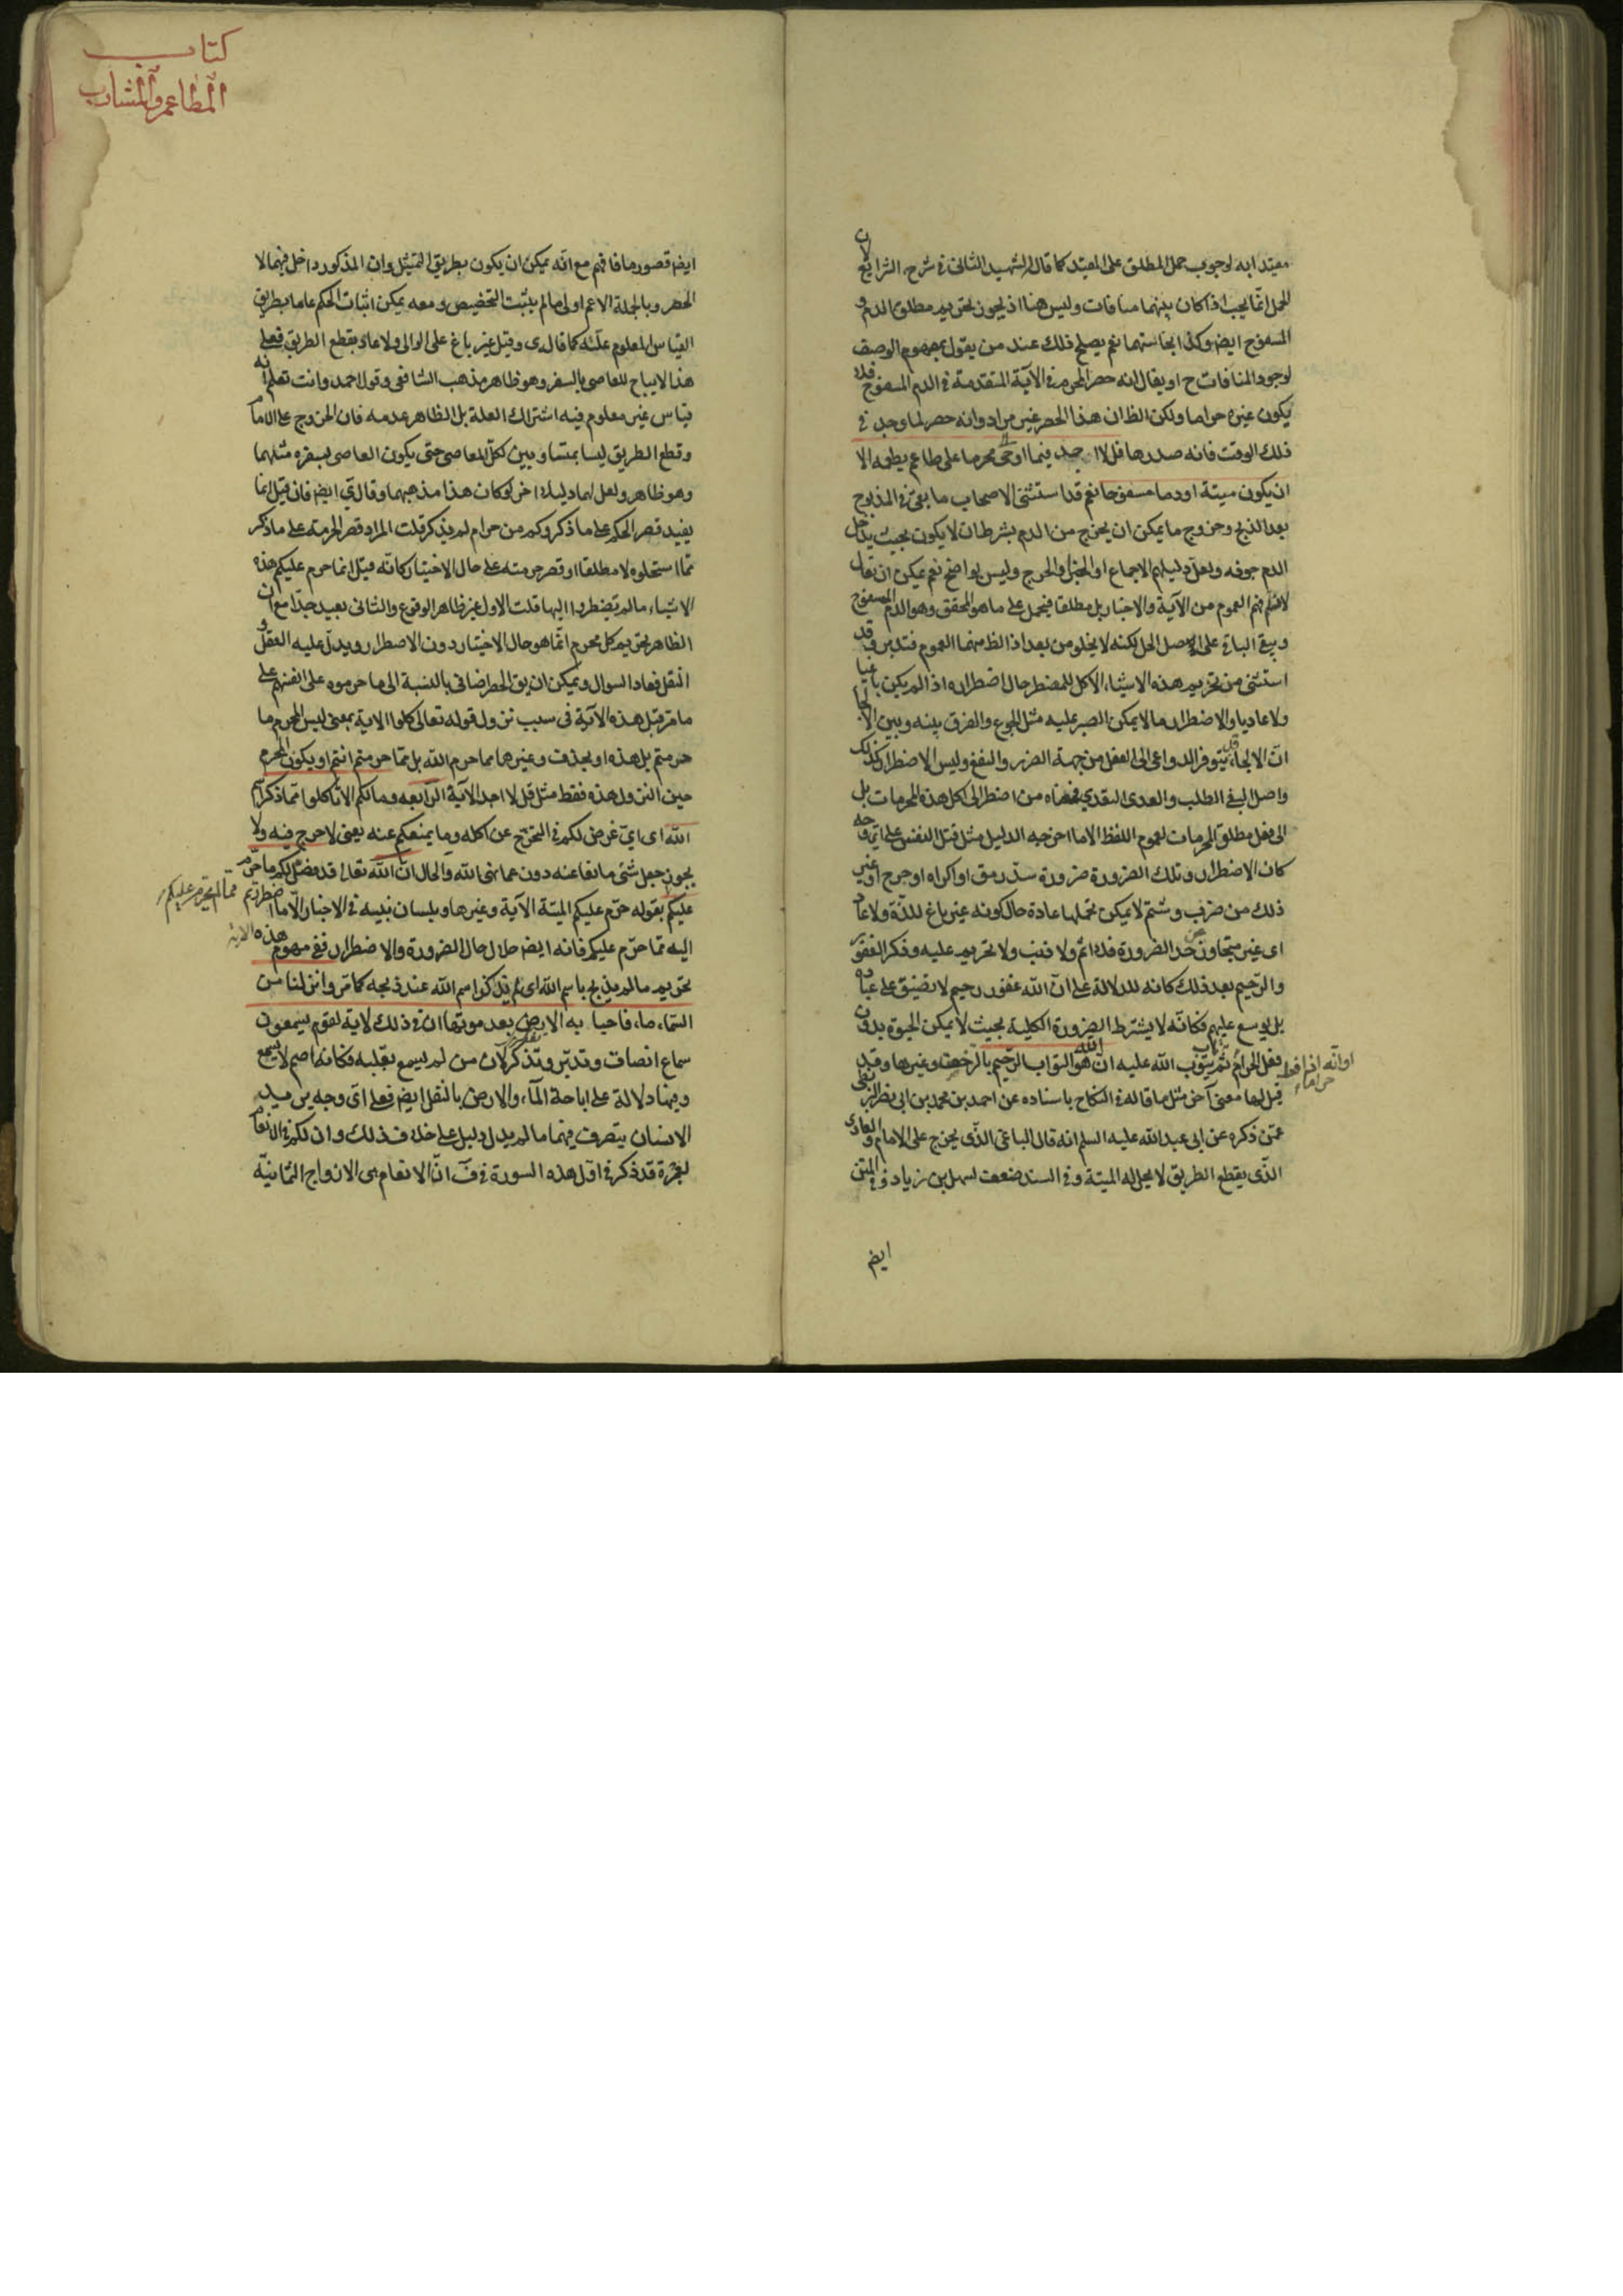 مقيدا به لوجوب حمل المطلق على المقيد كما قال الشهيد الثانى فى شرح الشرايع لان
الحمل انما يجب اذا كان بينهما منافات وليس هنا اذ يجوز تحريم مطلق الدم و
المسفوح ايضا وكذا نجاستهما نعم يصلح ذلك عند من يقول بمفهوم الوصف
لوجود المنافات ح او يقال انه حصر المحرم فى الآية المتقدمة فى الدم المسفوح فلا
يكون غيره حراما ولكن الظ ان هذا الحصر غير مراد وانه حصر لما وجد فى
ذلك الوقت فانه صدرها قل لا اجد فيما اوحى الى محرما على طاعم يطعمه الا
ان يكون ميتة او دما مسفوحا نعم قد استثنى الاصحاب ما بقى فى المذبوح
بعد الذبح وخروج ما يمكن ان يخرج من الدم بشرط ان لا يكون بحيث يدخل
الدم جوفه ولعل دليلهم الاجماع او الخبر او الحرج وليس بواضح نعم يمكن ان يقال
لا نسلم فهم العموم من الآية والاخبار بل مطلقا فيحمل على ما هو المحقق وهو الدم المسفوح
ويبقى الباقى على الاصل الحل لكنه لا يخلو من بعد اذ الظ منهما العموم فتدبر وقد
استثنى من تحريم هذه الاشياء الاكل للمضطر حال اضطراره اذا لم يكن باغيا
ولا عاديا والاضطرار ما لا يمكن الصبر عليه مثل الجوع والفرق بينه وبين الالجا
ان الالجاء قد يتوفر الدواعى الى الفعل من جهة الضرر والنفع وليس الاضطرار كذلك
واصل البغى الطلب والعدى التعدى فمعناه من اضطر الى اكل هذه المحرمات بل
الى فعل مطلق المحرمات لعموم اللفظ الا ما اخرجه الدليل مثل قتل النفس على اى وجه
كان الاضطرار وتلك الضرورة ضرورة سد رمق او اكراه او جرح او غير
ذلك من ضرب وشتم لا يمكن تحملها عادة حال كونه غير باغ للذة ولا عاد
اى غير متجاوز عن حد الضرورة فلا اثم ولا ذنب ولا تحريم عليه وذكر الغفور
والرحيم بعد ذلك كانه للدلالة على ان الله غفور رحيم لا يضيق على عباده
بل يوسع عليهم فكانه لا يشترط الضرورة الكلية بحيث لا يمكن الحيوة بدون
فعل الحرام ثم يتوب الله عليه ان الله هو التواب الرحيم بالرخصة وغيرها وقد
او انه اذا فعل حراما
قيل لهما معنى آخر مثل ما قاله فى النكاح باسناده عن احمد بن محمد بن ابى نصر البزنطى
عمن ذكره عن ابى عبد الله عليه السلم انه قال الباغى الذى يخرج على الامام والعادى
الذى يقطع الطريق لا يحل له الميتة وفى السند ضعف لسهل بن زياد وفى المتن
ايضا
كتاب
المطاعم والمشارب
ايضا قصور ما فافهم مع انه يمكن ان يكون بطريق التمثيل وان المذكور داخل فيهما لا
الحصر وبالجملة الاعم اولى ما لم يثبت التخصيص ومعه يمكن اثبات الحكم عاما بطريق
القياس المعلوم علته كما قاله ى وقيل غير باغ على الوالى ولا عاد بقطع الطريق فعلى
هذا لا يباح للعاصى بالسفر وهو ظاهر مذهب الشافعى وقول احمد وانت تعلم انه
قياس غير معلوم فيه اشتراك العلة بل الظاهر عدمه فان الخروج على الامام
وقطع الطريق ليسا بمتساويين لكل المعاصى حتى يكون العاصى بسفره مثلهما
وهو ظاهر ولعل لهما دليلا اخر لو كان هذا مذهبهما وقال ى ايضا فان قيل انما
يفيد قصر الحكم على ما ذكر وكم من حرام لم يذكر قلت المراد قصر الحرمة على ما ذكر
مما استحلوه لا مطلقا او قصر حرمته على حال الاختيار كانه قيل انما حرم عليكم هذه
الاشياء ما لم تضطروا اليها قلت الاول غير ظاهر الوقوع والثانى بعيد جدا مع ان
الظاهر تحريم كل محرم انما هو حال الاختيار دون الاضطرار ويدل عليه العقل و
النقل فعاد السوال ويمكن ان يق الحصر اضافى بالنسبة الى ما حرموه على انفسهم على
ما مر قبل هذه الآية فى سبب نزول قوله تعالى كلوا الاية بمعنى ليس المحرم ما
حرمتم بل هذه او بحذف وغيرها مما حرم الله بل مما حرمتم انتم او يكون المحرم
حين النزول هذه فقط مثل قل لا اجد الآية الرابعه وما لكم الا تاكلوا مما ذكر اسم
الله اى اى غرض لكم فى التحرج عن اكله وما يمنعكم عنه يعنى لا حرج فيه ولا
يجوز جعل شئ مانعا عنه دون عما نهى الله والحال ان الله تعالى قد فصل لكم ما حرم
عليكم بقوله حرم عليكم الميتة الآية وغيرها وبلسان نبيه فى الاخبار الا ما اضطررتم مما لم يحرم عليكم
اليه مما حرم عليكم فانه ايضا حلال حال الضرورة والاضطرار ففى مفهوم هذه الاية
تحريم ما لم يذبح باسم الله اى لم يذكر اسم الله عند ذبحه كما مر وانزلنا من
السماء ماء فاحيا به الارض بعد موتها ان فى ذلك لاية لقوم يسمعون
سماع انصاف وتدبر وتذكر لان من لم يسمع بقلبه فكانه اصم لا يسمع
وفيها دلالة على اباحة الماء والارض بالنقل ايضا فعلى اى وجه يريد
الانسان يتصرف فيهما ما لم يدل دليل على خلاف ذلك وان لكم فى الانعام
لعبرة قد ذكر فى اول هذه السورة فى ف ان الانعام هى الازواج الثمانية